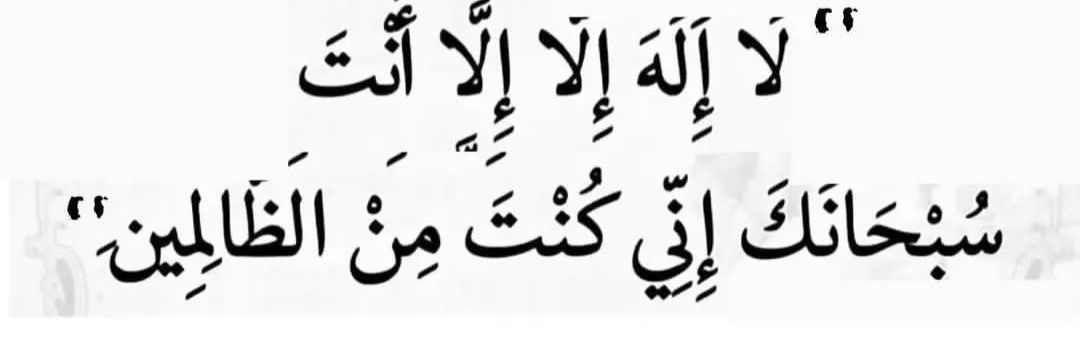 "لَا إِلَهَ إِلَا إِلَّا أَنْتَ
سُبْحَانَكَ إِنِّي كُنْتَ مِنْ الَظَالِمِينِ"